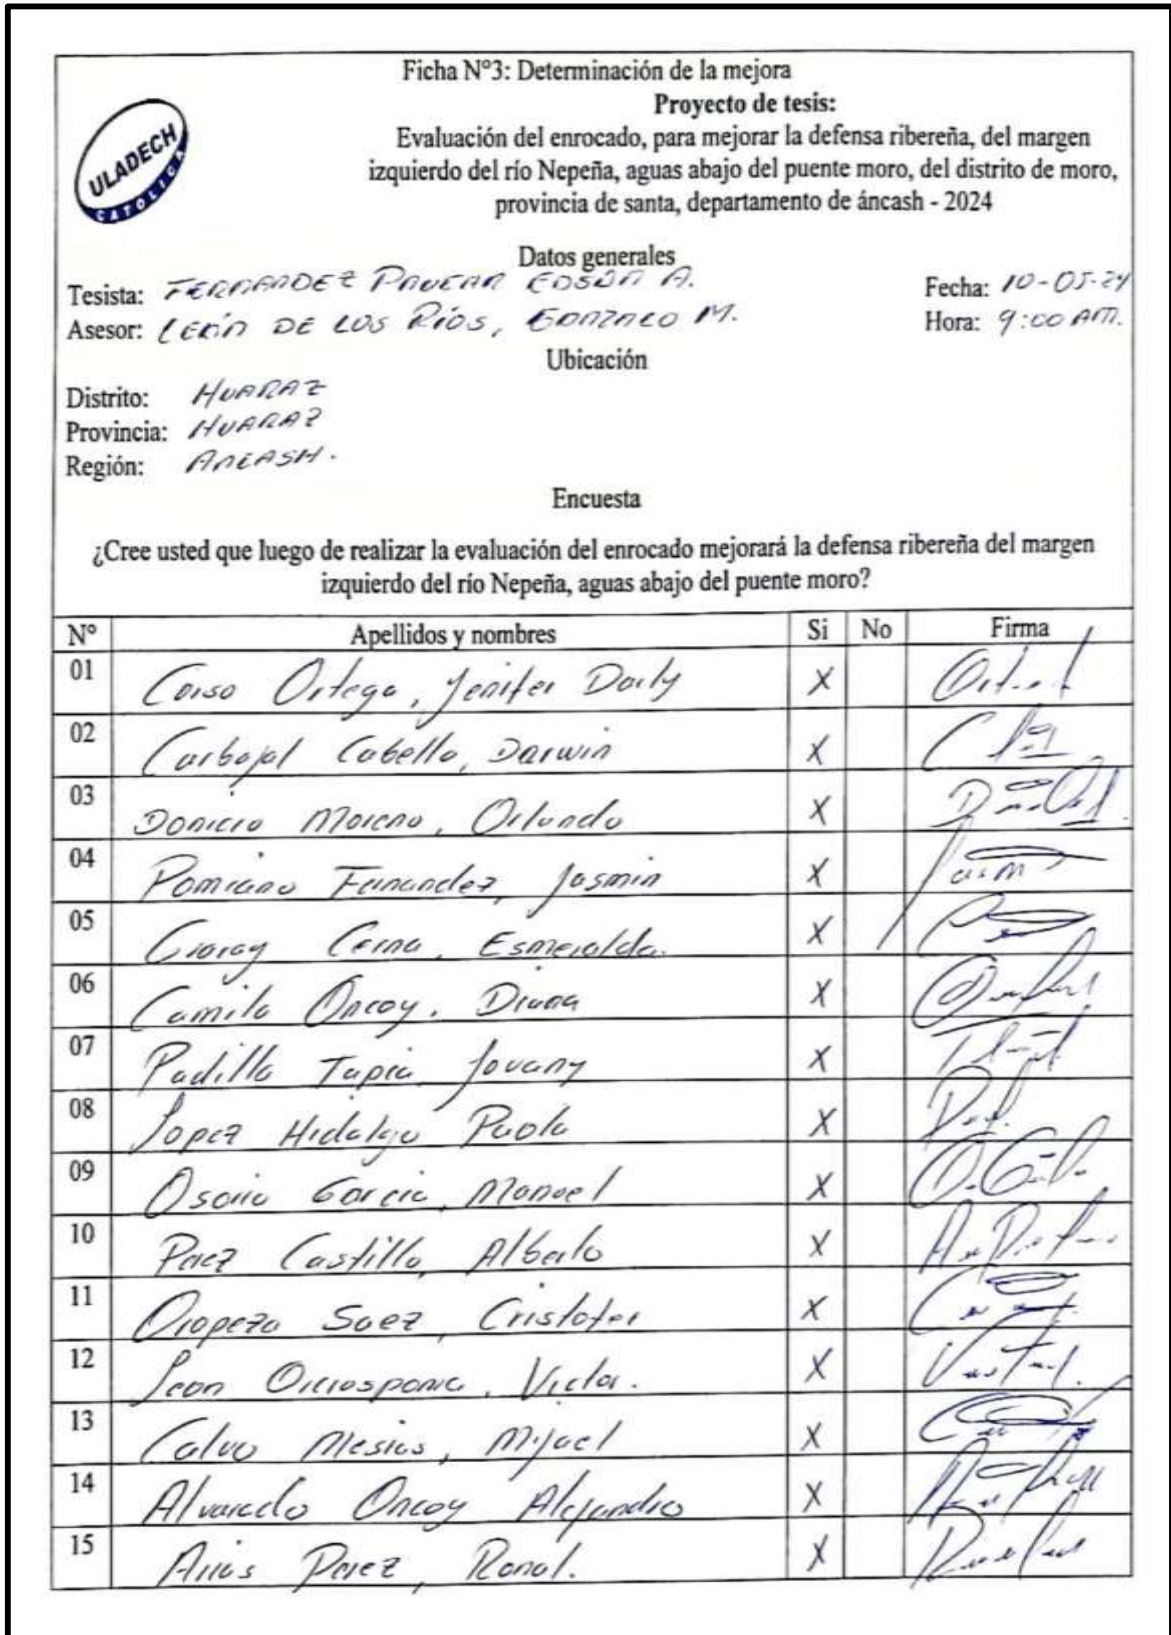 Ficha N°3: Determinación de la mejora
ULADECH
CATOLICA
Proyecto de tesis:
Evaluación del enrocado, para mejorar la defensa ribereña, del margen
izquierdo del río Nepeña, aguas abajo del puente moro, del distrito de moro,
provincia de santa, departamento de áncash - 2024
Datos generales
Tesista: FERNANDEZ PAUCAR EDSON A.
Fecha: 10-05-24
Asesor: LEÓN DE LOS RÍOS, GONZALO M.
Hora: 9:00 AM.
Ubicación
Distrito: HUARAZ
Provincia: HUARAZ
Región: ANCASH.
Encuesta
¿Cree usted que luego de realizar la evaluación del enrocado mejorará la defensa ribereña del margen
izquierdo del río Nepeña, aguas abajo del puente moro?
N° Apellidos y nombres Si No Firma
01 Ortega, Jenifer X
02 Carbajal Cabello, Darwin X
03 Donicio Moreno, Orlando X
04 Pomiano Fernandez, Jasmin X
05 Garay Cerna, Esmeralda. X
06 Camilo Oncoy, Diana X
07 Padilla Tapia Jovany X
08 Lopez Hidalgo Paola X
09 Osorio Garcia, Manuel X
10 Perez Castillo, Alberto X
11 Oropeza Saez, Cristofer X
12 Leon, Victor. X
13 Calvo Mesias, Mijael X
14 Alvarado Oncoy Alejandro X
15 Arias Perez, Ronal. X